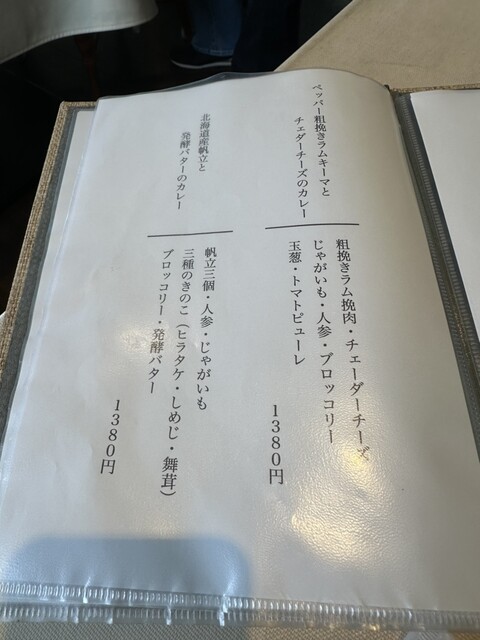 ペッパー粗挽きラムキーマと
チェダーチーズのカレー
粗挽きラム挽肉・チェーダーチーズ
じゃがいも・人参・ブロッコリー
玉葱・トマトピューレ
1380円
北海道産帆立と
発酵バターのカレー
帆立三個・人参・じゃがいも
三種のきのこ（ヒラタケ・しめじ・舞茸）
ブロッコリー・発酵バター
1380円